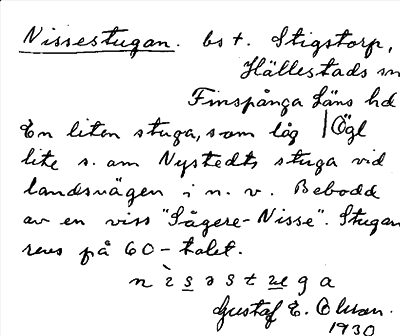 Nissestugan. bst. Stigstorp,
Hällestads sn
Finspånga Läns hd
En liten stuga, som låg | Ögl
lite s. om Nystedts stuga vid
landsvägen i n. v. Bebodd
av en viss "Sågere-Nisse". Stugan
revs på 60-talet.
Gustaf E. Olsson.
1930